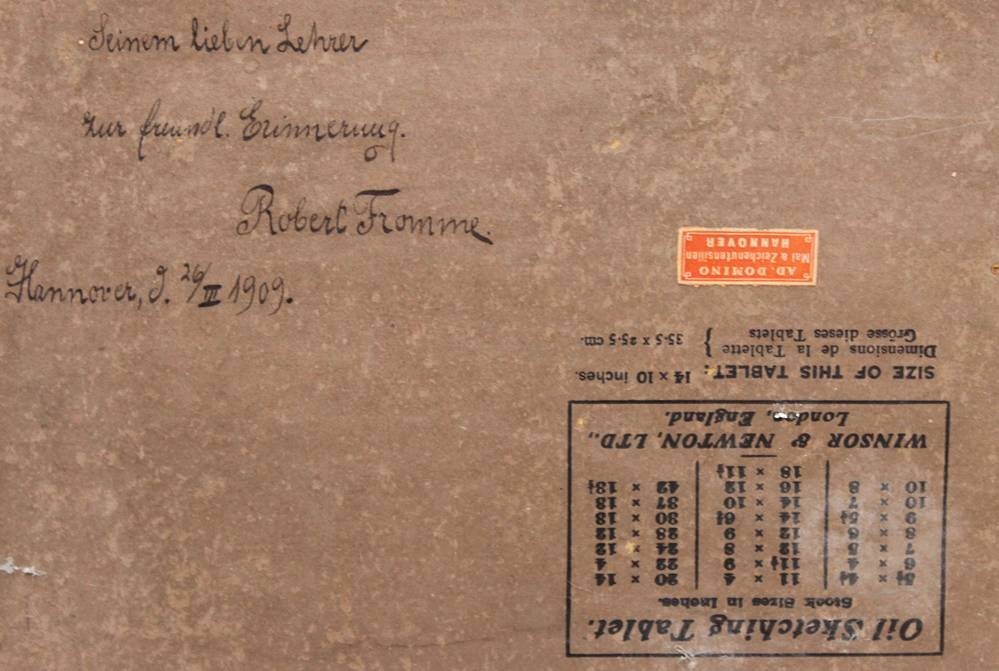 Seinem lieben Lehrer
zur freundl. Erinnerung.
Robert Fromme.
Hannover, d. 26/III 1909.
AD. DOMINO
Mal & Zeichenutensilien
HANNOVER
Oil Sketching Tablet.
Stock Sizes in Inches.
5½ × 4¼ 11 × 4 20 × 14
6 × 4 11½ × 9 22 × 4
7 × 5 12 × 8 24 × 12
8 × 6 12 × 9 28 × 12
9 × 5¼ 14 × 6½ 30 × 18
10 × 7 14 × 10 37 × 18
10 × 8 16 × 12 42 × 13¼
18 × 11½
WINSOR & NEWTON, LTD.,
London, England.
SIZE OF THIS TABLET: 14 × 10 inches.
Dimensions de la Tablette
Grösse dieses Tablets } 35·5 × 25·5 cm.